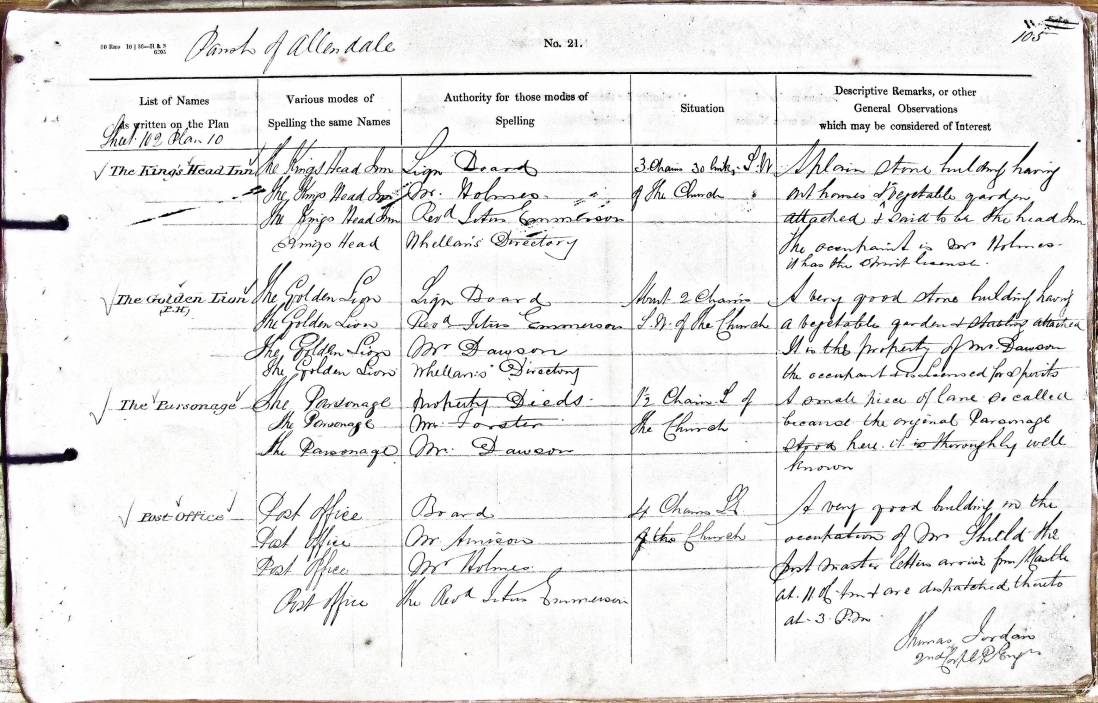 Parish of Allendale
No. 21.
105
List of Names
as written on the Plan
Various modes of
Spelling the same Names
Authority for those modes of
Spelling
Situation
Descriptive Remarks, or other
General Observations
which may be considered of Interest
Sheet 102 Plan 10
The King's Head Inn
The Kings Head Inn
The Kings Head Inn
The Kings Head Inn
Kings Head
Sign Board
Mr. Holmes
Revd Titus Emmerson
Whellan's Directory
3 Chains 30 links S.W
of the Church
A plain stone building having
out houses & vegetable garden
attached & said to be the head Inn
The occupaint is Mr Holmes.
it has the Spirit license.
The Golden Lion
(P.H)
The Golden Lion
The Golden Lion
The Golden Lion
The Golden Lion
Sign Board
Revd Titus Emmerson
Mr Dawson
Whellan's Directory
About 2 Chains
S.W. of the Church
A very good stone building having
a vegetable garden & stables attached
It is the property of Mr Dawson
the occupant & is licensed for spirits
The Parsonage
The Parsonage
The Parsonage
The Parsonage
Property Deeds.
Mr. Forster
Mr. Dawson
1/2 Chain S of
the Church
A small piece of lane so called
because the original Parsonage
stood here it is thoroughly well
known
Post Office
Post Office
Post Office
Post Office
Post Office
Board
Mr Arnison
Mr Holmes.
The Revd Titus Emmerson
4 Chains
of the Church
A very good building in the
occupation of Mr Shield the
post master letters arrive from
at 11 & are dispatched thereto
at 3 P.m.
Thomas Jordan
2nd Corpl R Engrs